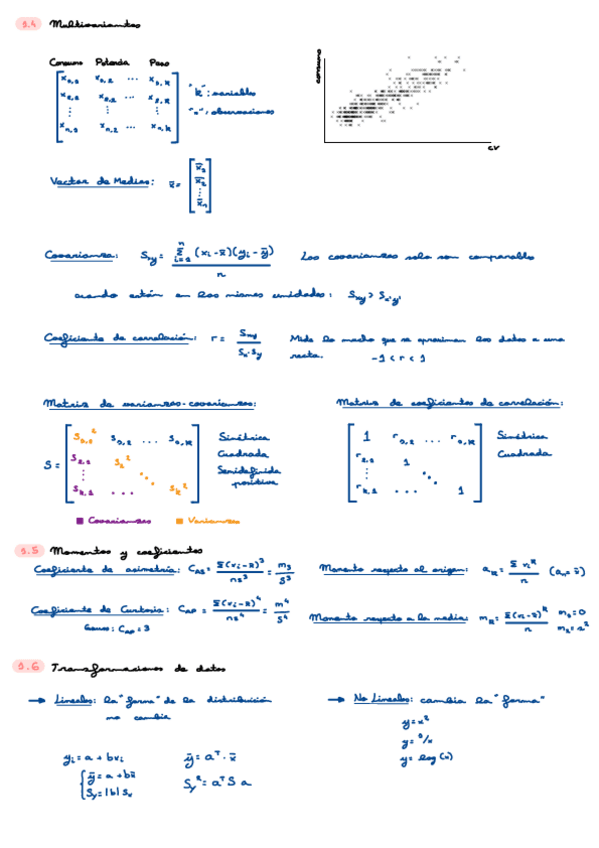 1.4 Multivariantes
Consumo Potencia Peso
x₁,₁ x₁,₂ ... x₁,k
x₂,₁ x₂,₂ ... x₂,k
⋮ ⋮ ⋮
xₙ,₁ xₙ,₂ ... xₙ,k
"k": variables
"n": observaciones
consumo
cv
Vector de Medias: x̄ =
Covarianza: Sxy = Σ (xi - x̄)(yi - ȳ) / n Las covarianzas solo son comparables
cuando están en las mismas unidades: Sxy > Sx'y'
Coeficiente de correlación: r = Sxy / Sx·Sy Mide lo mucho que se aproximan los datos a una
recta. -1 < r < 1
Matriz de varianzas-covarianzas:
S =
S₁,₁² S₁,₂ ... S₁,k
S₂,₁ S₂²
⋮
Sk,₁ ... Sk²
Simétrica
Cuadrada
Semidefinida
positiva
Covarianzas Varianzas
Matriz de coeficientes de correlación:
1 r₁,₂ ... r₁,k
r₂,₁ 1
⋮
rk,₁ ... 1
Simétrica
Cuadrada
1.5 Momentos y coeficientes
Coeficiente de asimetría: CAS = Σ(xi - x̄)³ / ns³ = m₃ / s³
Momento respecto al origen: aR = Σ xiᴿ / n (a₁ = x̄)
Coeficiente de Curtosis: CAP = Σ(xi - x̄)⁴ / ns⁴ = m⁴ / s⁴
Gauss: CAP = 3
Momento respecto a la media: mR = Σ(xi - x̄)ᴿ / n m₁ = 0
m₂ = s²
1.6 Transformaciones de datos
→ Lineales: la "forma" de la distribución
no cambia
yi = a + bxi
ȳ = a + bx̄
Sy = |b| Sx
ȳ = aᵀ · x̄
Sy² = aᵀ S a
→ No Lineales: cambia la "forma"
y = x²
y = ⁰/x
y = log(x)